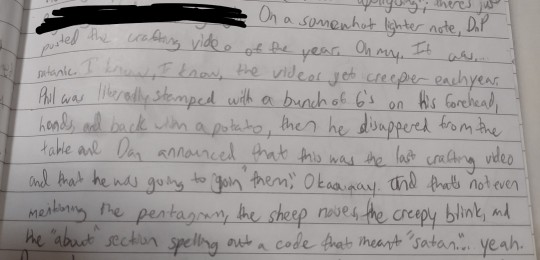 apologising. there's just
On a somewhat lighter note, DnP
posted the crafting video of the year. Oh my. It was...
satanic. I know, I know, the videos get creepier each year.
Phil was literally stamped with a bunch of 6's on his forehead,
hands, and back with a potato, then he disappeared from the
table and Dan announced that this was the last crafting video
and that he was going to "join them". Okaaaayay. And that's not even
mentioning the pentagram, the sheep noises, the creepy blink, and
the "about" section spelling out a code that meant "satan"... yeah.